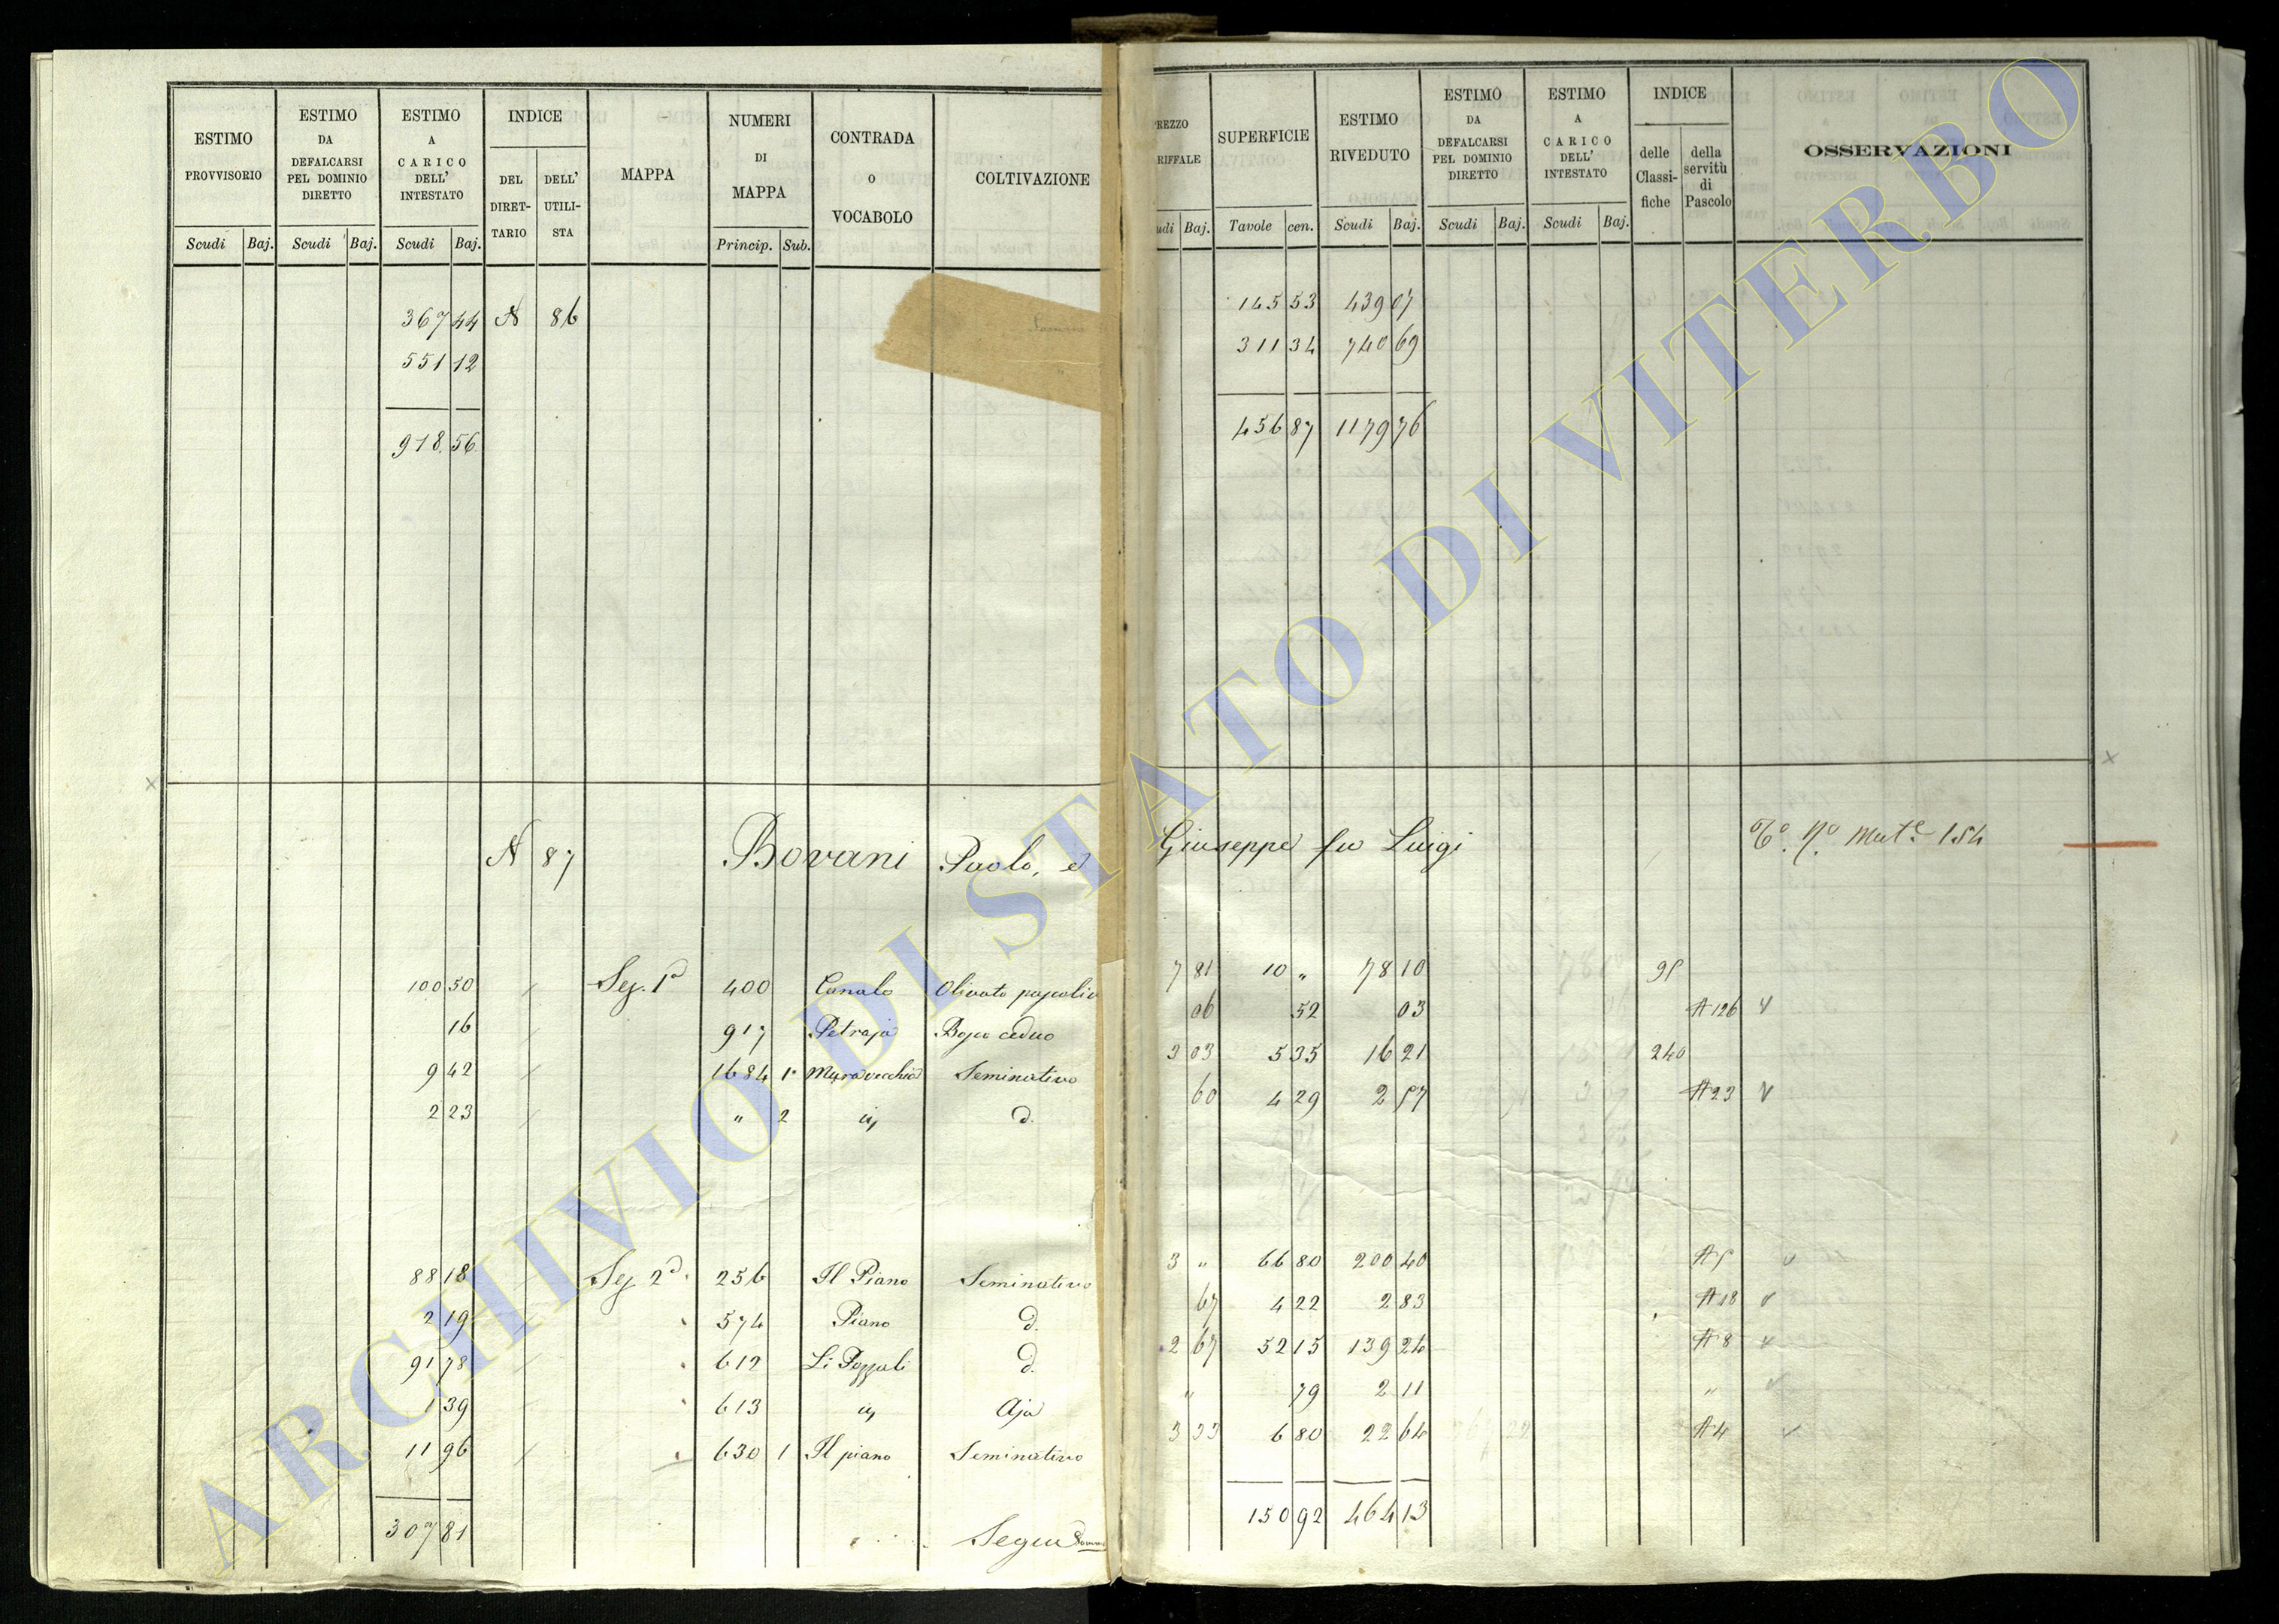 ESTIMO PROVVISORIO | ESTIMO DA DEFALCARSI PEL DOMINIO DIRETTO | ESTIMO A CARICO DELL' INTESTATO | INDICE | MAPPA | NUMERI DI MAPPA | CONTRADA O VOCABOLO | COLTIVAZIONE | REZZO RIFFALE | SUPERFICIE | ESTIMO RIVEDUTO | ESTIMO DA DEFALCARSI PEL DOMINIO DIRETTO | ESTIMO A CARICO DELL' INTESTATO | INDICE | OSSERVAZIONI
DEL DIRETTARIO | DELL' UTILISTA | delle Classifiche | della servitù di Pascolo
Scudi | Baj. | Scudi | Baj. | Scudi | Baj. | Princip. | Sub. | udi | Baj. | Tavole | cen. | Scudi | Baj. | Scudi | Baj. | Scudi | Baj.
367 44 | A | 86 | 145 53 | 439 07
551 12 | 311 34 | 740 69
918. 56 | 456 87 | 1179 76
A | 87 | Bovani Paolo, e Giuseppe fu Luigi | Mut.e 154
100 50 | Sez. 1a | 400 | Canale | Olivato | 7 81 | 10 " | 78 10 | 95
16 | 917 | Petraja | Bosco ceduo | 06 | 52 | 03 | A 126
9 42 | 1684 | 1 | Muravecchia | Seminativo | 3 03 | 5 35 | 16 21 | 240
2 23 | " | 2 | d. | 60 | 4 29 | 2 57 | A 23
88 18 | Sez. 2a | 256 | Il Piano | Seminativo | 3 " | 66 80 | 200 40 | A 5
2 19 | 574 | Piano | d. | 67 | 4 22 | 2 83 | A 18
91 78 | 612 | Li Pozzali | d. | 2 67 | 52 15 | 139 24 | A 8
1 39 | 613 | Aja | " | 79 | 2 11 | "
11 96 | 630 | 1 | Il piano | Seminativo | 3 33 | 6 80 | 22 64 | A 4
307 81 | Segue Somma | 150 92 | 464 13
ARCHIVIO DI STATO DI VITERBO